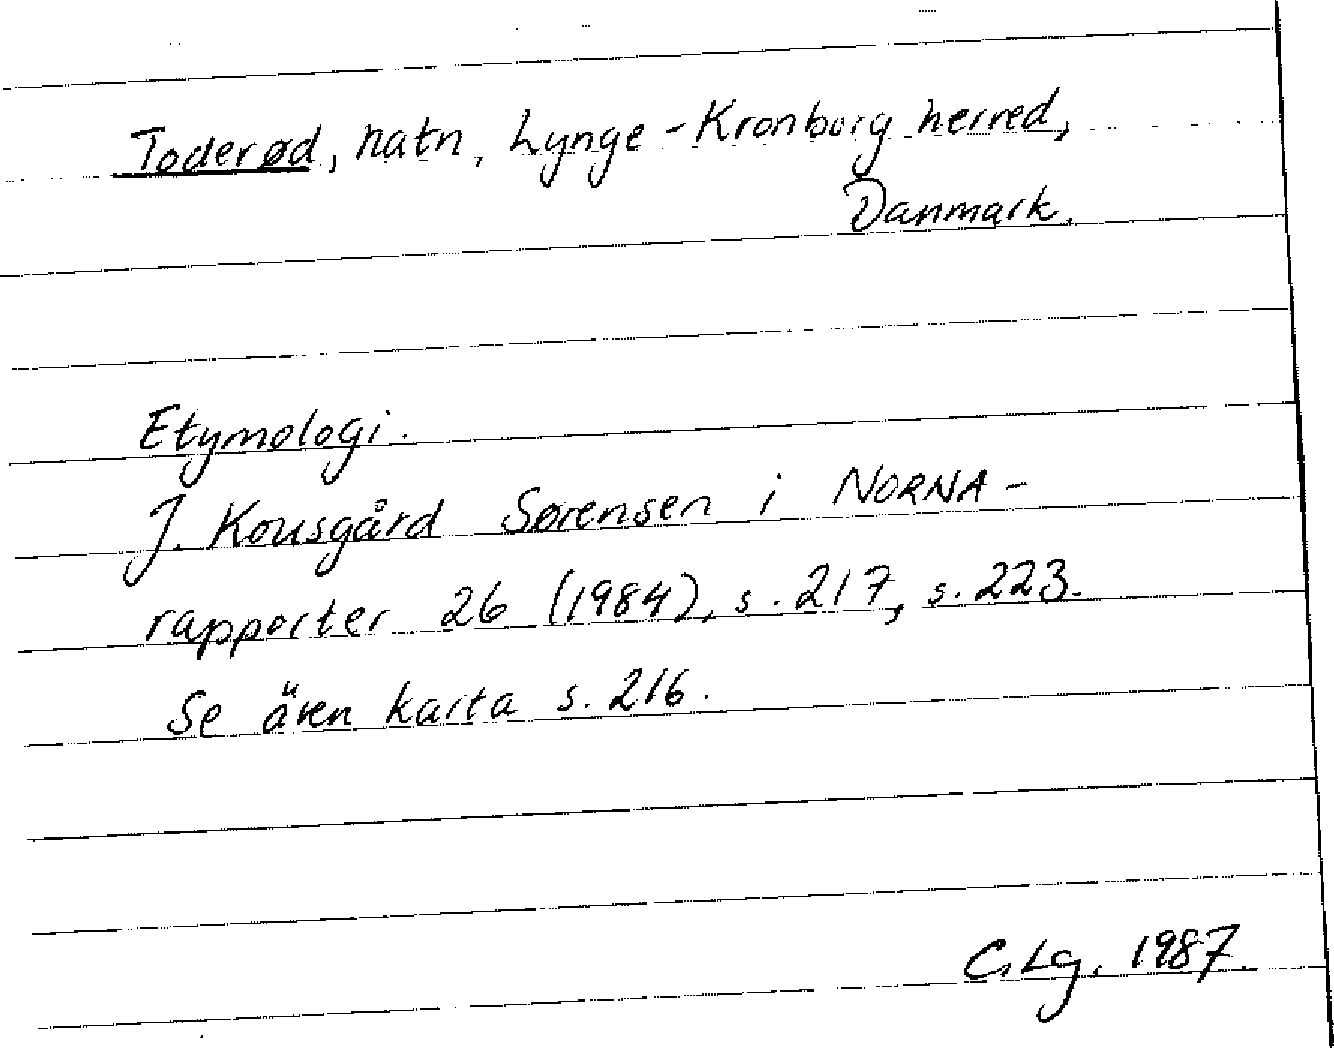 Toderød, natn, Lynge-Kronborg herred,
Danmark.
Etymologi.
J. Kousgård Sørensen i NORNA-
rapporter 26 (1984), s. 217, s. 223.
Se även karta s. 216.
C.Lg. 1987.